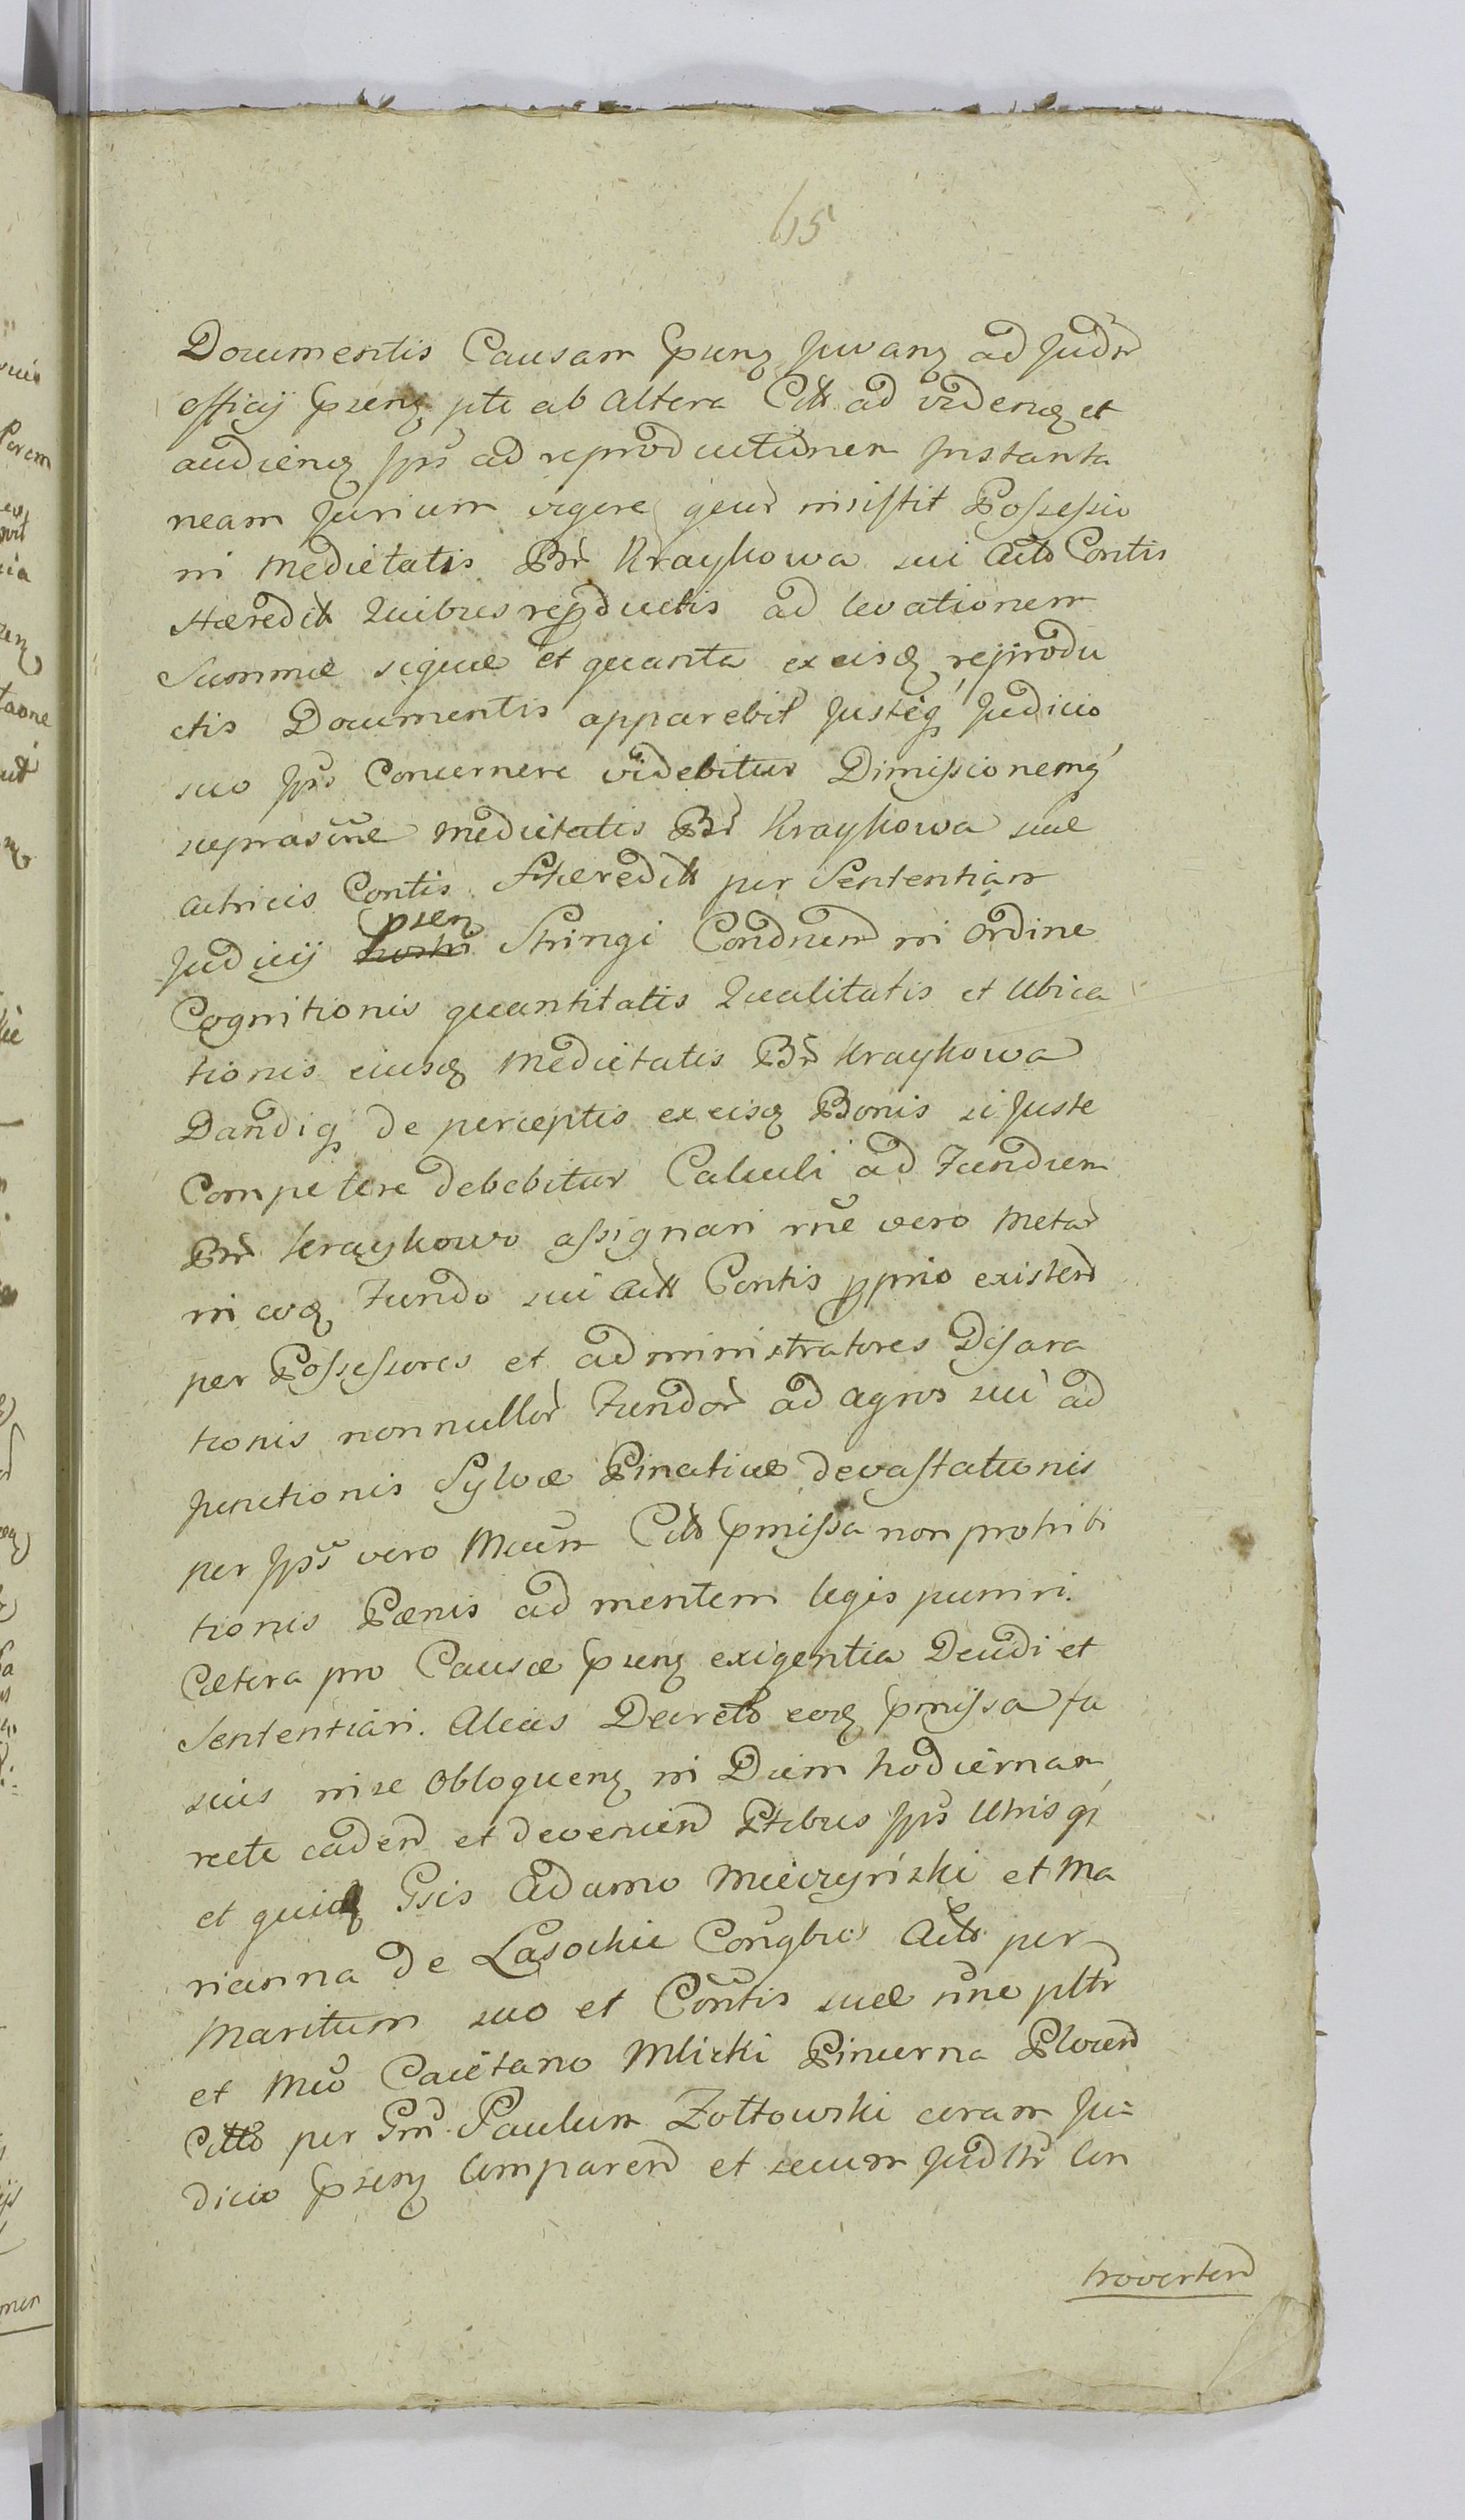 615
Documentis Causam psenz Juvanz ad Judm
officij psenz pte ab altera Citt ad videnz et
audienz Jps ad reproductionem Instanta
neam Jurium vigore quor insistit Possessio
ni Medietatis Br Kraykowa sui Actt Contis
Haeredit Quibus repductis ad levationem
Summae siquae et quanta ex eisd reprodu
ctis Documentis apparebit Justeq Judicio
suo Jps Concernere videbitur Dimissionemq
suprascrae Medietatis Br Kraykowa suae
actricis Contis Haeredit per Sententiam
Judicij psen Stringi Condnem in ordine
Cognitionis quantitatis Qualitatis et Ubica
tionis eiusd Medietatis Br Kraykowa
Dandiq de perceptis ex eisd Bonis si Juste
Competere debebitur Calculi ad Fundum
Br Kraykowo assignari rne vero Metar
in eod Fundo sui Actt Contis pprio existen
per Possessores et administratores Disara
tionis nonnullor Fundor ad agros sui ad
junctionis Sylvae Pinaticae devastationis
per Jps vero Mcum Citt pmissa non prohibi
tionis Paenis ad mentem legis puniri.
Caetera pro Causae psenz exigentia Decidi et
Sententiari. Alias Decreto eod pmissa fu
sius in se obloquenz in Diem hodiernam
recte caden et devenien Ptibus Jps Utrisq
et quid Gsis Adamo Mieczynski et Ma
rianna de Lasockie Congbus Actt per
Maritum suo et Contis suae nne pltr
et Mco Caietano Mlicki Pincerna Plocen
Citto per Gm Paulum Zołtowski coram Ju=
dicio psenz Comparen et secum Judltr Con
troverten